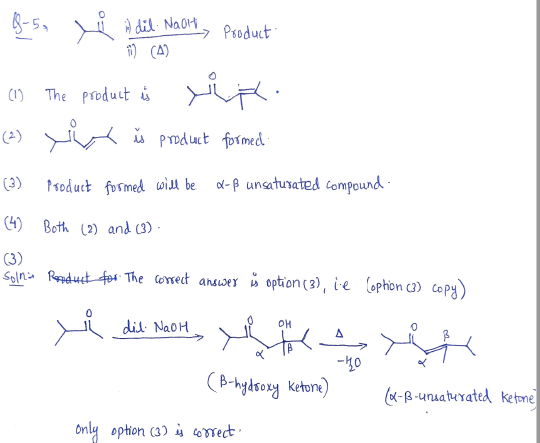 Q-5, O i) dil. NaOH Product.
ii) (Δ)
(1) The product is O .
(2) O is product formed.
(3) Product formed will be α-β unsaturated compound.
(4) Both (2) and (3).
(3)
Soln:- Product for The correct answer is option (3), i.e (option (3) copy)
O dil. NaOH O OH α β Δ -H2O O α β
(β-hydroxy Ketone) (α-β-unsaturated Ketone)
only option (3) is correct.